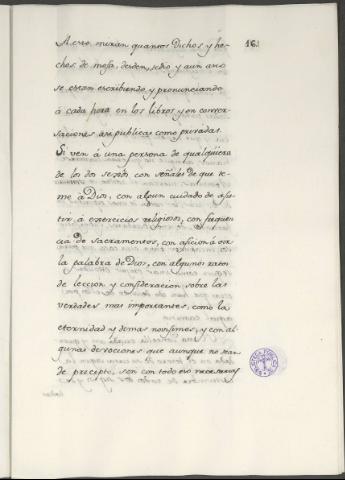 16.
A esto, miran quantos Dichos y he-
chos de mofa, desden, y aun
se estan escribiendo y pronunciando
á cada hora en los libros y en conver-
saciones asi publicas como privadas.
Si ven á una persona de qualquiera
de los dos sexôs con señales de que te-
me á Dios, con algun cuidado de asis-
tir á exercicios religiosos, con freqüen-
cia de Sacramentos, con aficion á oir
la palabra de Dios, con algunos ratos
de leccion y consideracion sobre las
verdades mas importantes, como la
eternidad y demas novisimos, y con al-
gunas devociones que aunque no sean
de precepto, son con todo eso necesarias